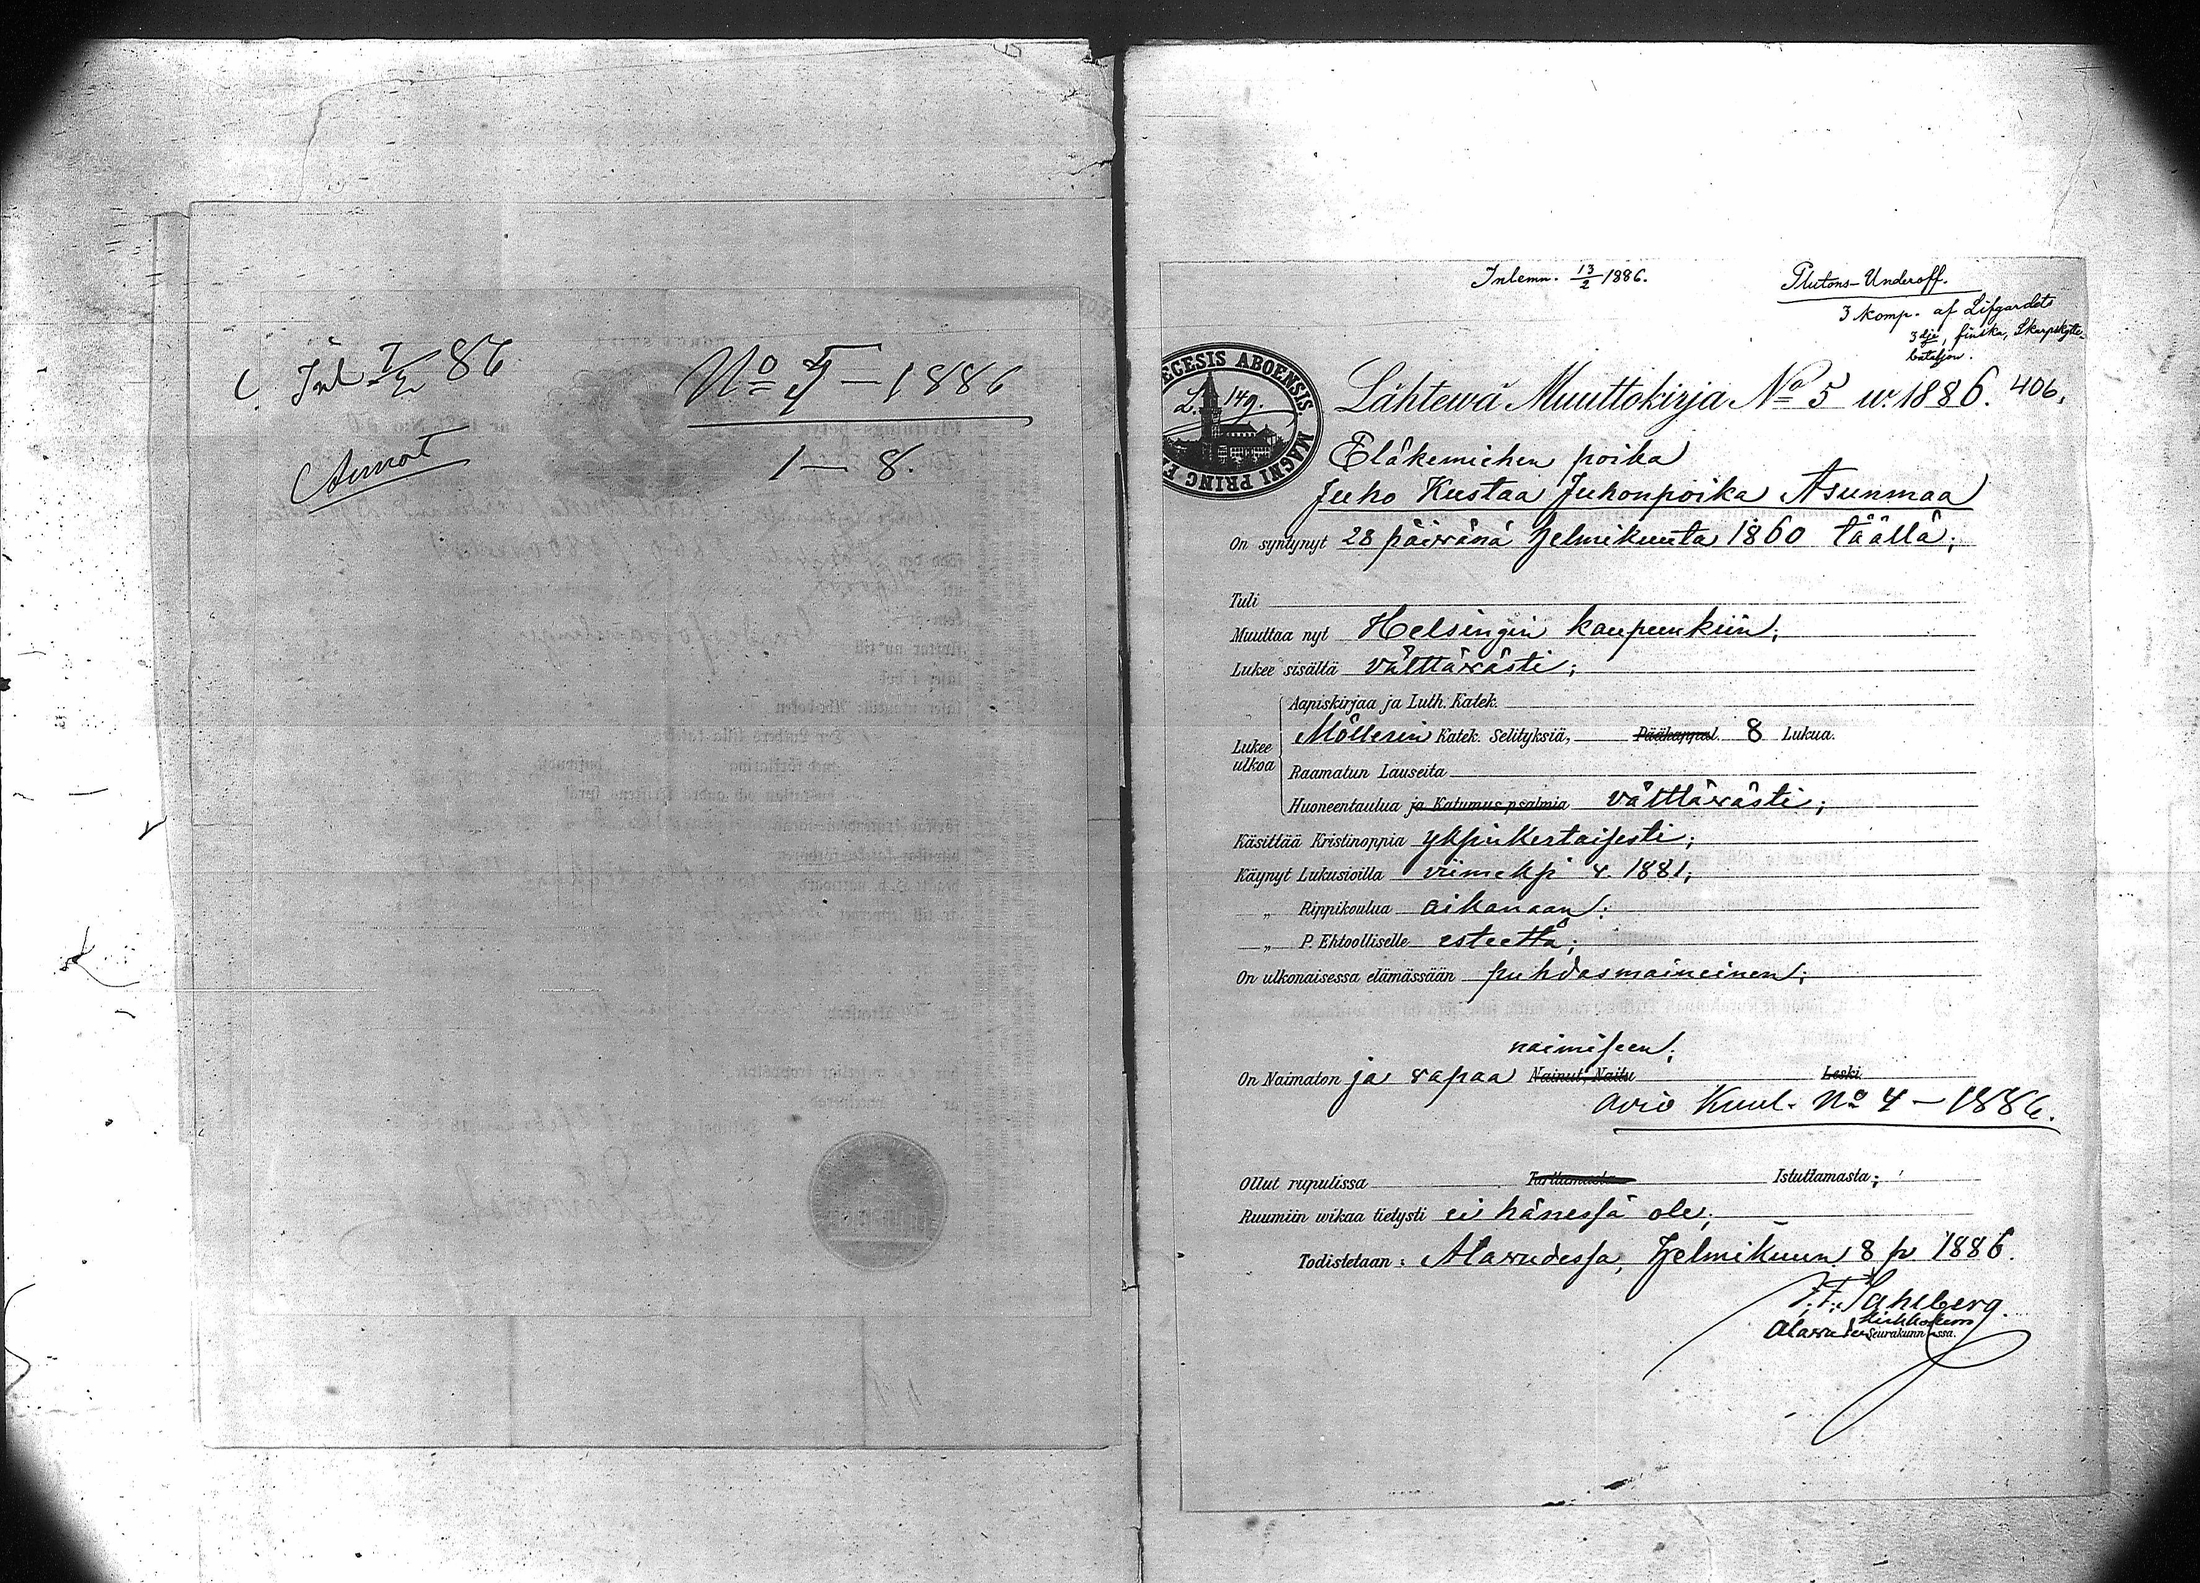 Inl 7/2 86
No 5 – 1886
1 – 8.
Inlemn. 13/2 1886.
Plutons-Underoff.
3 komp. af Lifgardets
3dje, finska, Skarpskytte-
bataljon.
ECESIS ABOENSIS. MAGNI PRINC. F
L. 149.
Lähtewä Muuttokirja No 5 w. 1886. 406.
Eläkemiehen poika
Juho Kustaa Juhonpoika Asunmaa
On syntynyt 28 päivänä Helmikuuta 1860 täällä;
Tuli
Muuttaa nyt Helsingin kaupunkiin;
Lukee sisältä välttävästi;
Lukee ulkoa
Aapiskirjaa ja Luth. Katek.
Möllerin Katek. Selityksiä, Pääkappal. 8 Lukua.
Raamatun Lauseita
Huoneentaulua ja Katumus psalmia välttävästi;
Käsittää Kristinoppia yksinkertaisesti;
Käynyt Lukusioilla viimeksi v. 1881;
„ Rippikoulua aikanaan;
„ P. Ehtoolliselle esteettä;
On ulkonaisessa elämässään puhdasmaineinen;
naimiseen;
On Naimaton ja vapaa Nainut, Naitu Leski.
Avio Kuul. No 4 – 1886.
Ollut rupulissa Tarttumasta Istuttamasta;
Ruumiin wikaa tietysti ei hänessä ole;
Todistetaan: Alavudessa, Helmikuun 8 p. 1886.
F. F. Sahlberg.
Kirkkoherra
Alavuden Seurakunnassa.